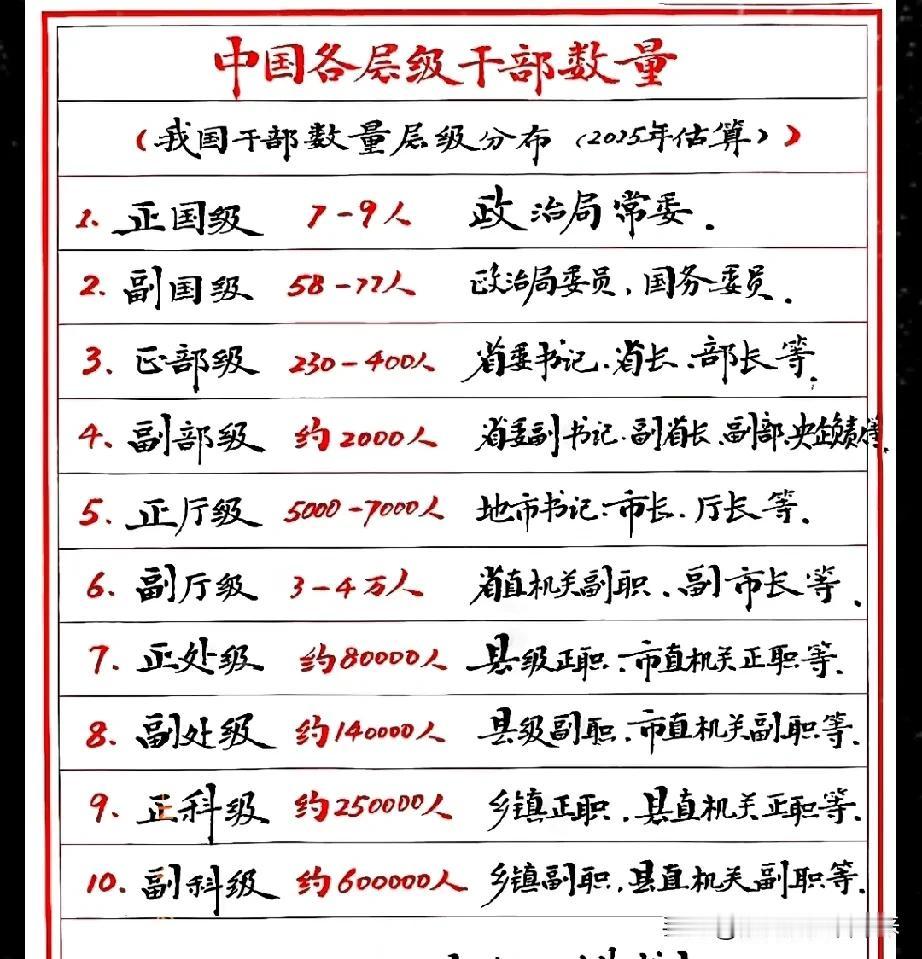 中国各层级干部数量
（我国干部数量层级分布（2025年估算））
1. 正国级 7-9人 政治局常委.
2. 副国级 58-77人 政治局委员、国务委员.
3. 正部级 230-400人 省委书记、省长、部长等.
4. 副部级 约2000人 省委副书记、副省长、副部、央企
5. 正厅级 5000-7000人 地市书记、市长、厅长等.
6. 副厅级 3-4万人 省直机关副职、副市长等.
7. 正处级 约80000人 县级正职、市直机关正职等.
8. 副处级 约140000人 县级副职、市直机关副职等.
9. 正科级 约250000人 乡镇正职、县直机关正职等.
10. 副科级 约600000人 乡镇副职、县直机关副职等.